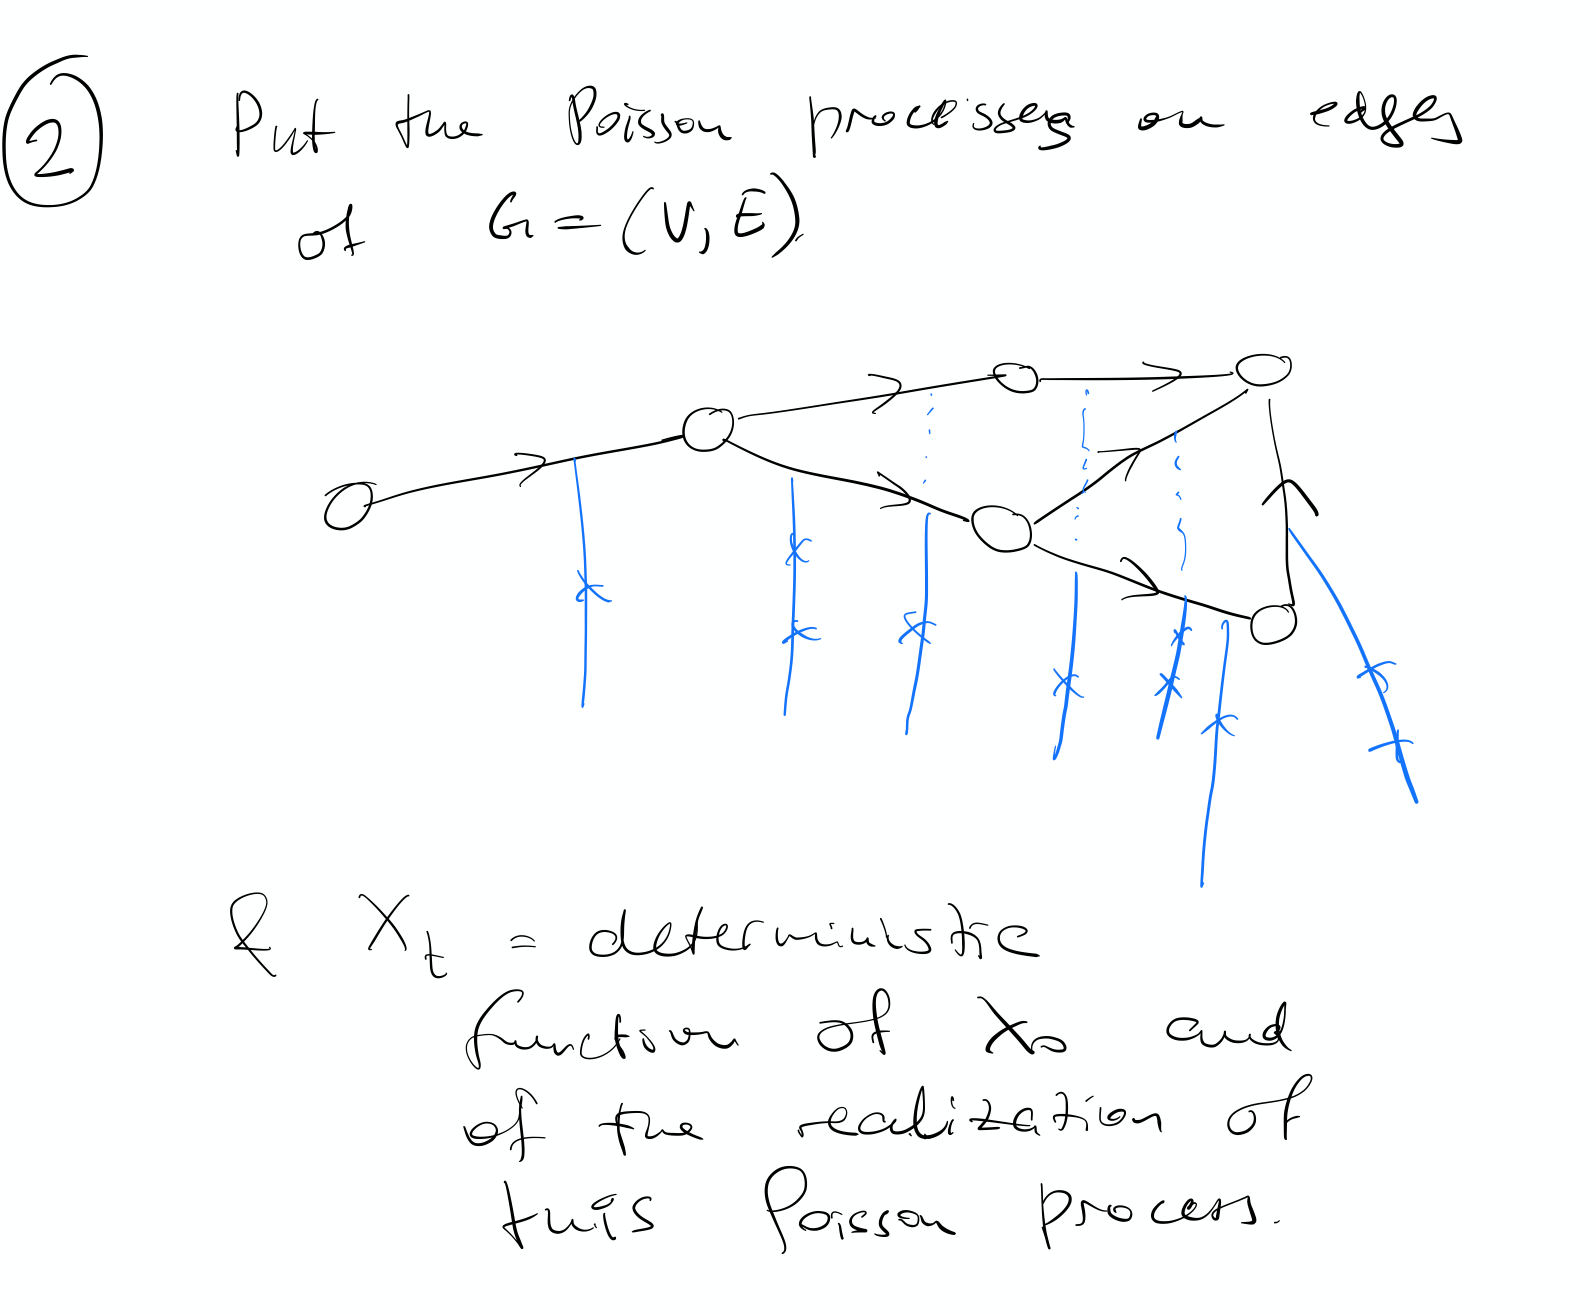 2 Put the Poisson processes on edges
of G = (V, E).
& X_t = deterministic
function of X_0 and
of the realization of
this Poisson process.